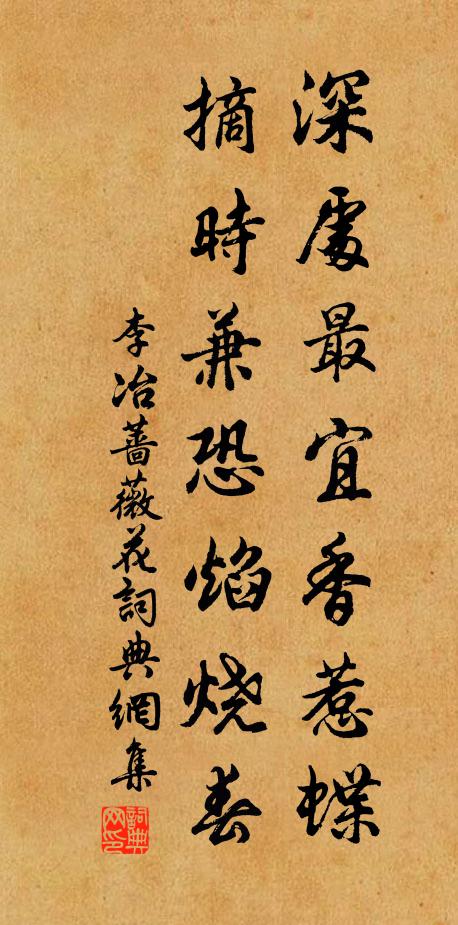 深處最宜香惹蝶
摘時兼恐焰烧春
李冶薔薇花詞典網集
詞典網印